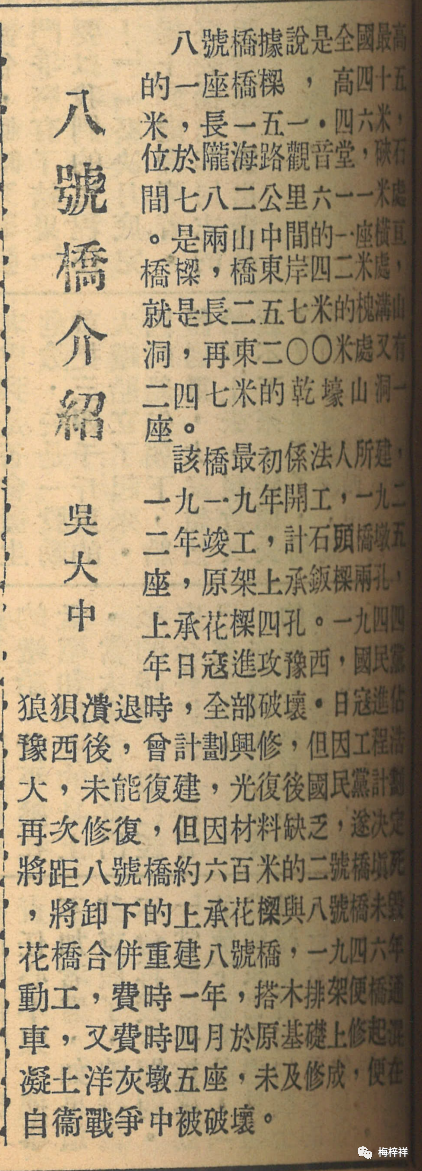 八號橋介紹
吳大中
八號橋據說是全國最高
的一座橋樑,高四十五
米,長一五一.四六米,
位於隴海路觀音堂,硤石
間七八二公里六一一米處
。是兩山中間的一座橫亙
橋樑,橋東岸四二米處,
就是長二五七米的槐溝山
洞,再東二〇〇米處又有
二四七米的乾壕山洞一
座。
該橋最初係法人所建,
一九一九年開工,一九二
二年竣工,計石頭橋墩五
座,原架上承鈑樑兩孔,
上承花樑四孔。一九四四
年日寇進攻豫西,國民黨
狼狽潰退時,全部破壞。日寇進佔
豫西後,曾計劃興修,但因工程浩
大,未能復建,光復後國民黨計劃
再次修復,但因材料缺乏,遂決定
將距八號橋約六百米的二號橋填死
,將卸下的上承花樑與八號橋未毀
花橋合併重建八號橋,一九四六年
動工,費時一年,搭木排架便橋通
車,又費時四月於原基礎上修起混
凝土洋灰墩五座,未及修成,便在
自衛戰爭中被破壞。
梅梓祥